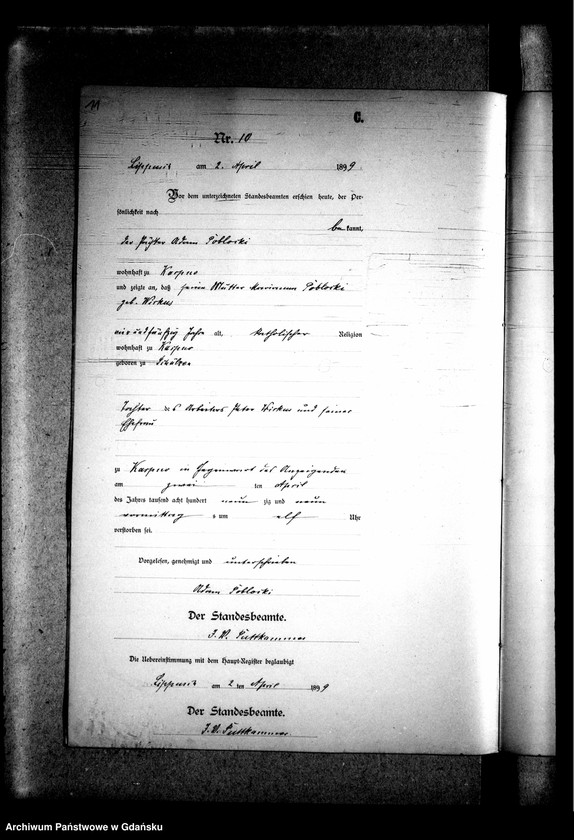 11
C.
Nr. 10
Lippusch am 2. April 1899
Vor dem unterzeichneten Standesbeamten erschien heute, der Per-
sönlichkeit nach
bekannt,
der Adam
wohnhaft zu Karpno
und zeigte an, daß seine Mutter Marianna
geb. Wirkus
Jahre alt, katholischer Religion
wohnhaft zu Karpno
geboren zu
Tochter des Arbeiters Peter Wirkus und seiner
Ehefrau
zu Karpno in Gegenwart des Anzeigenden
am zwei ten April
des Jahres tausend acht hundert neun zig und neun
vormittags um elf Uhr
verstorben sei.
Vorgelesen, genehmigt und unterschrieben
Adam
Der Standesbeamte.
J. V. Puttkammer
Die Uebereinstimmung mit dem Haupt-Register beglaubigt
Lippusch am 2 ten April 1899
Der Standesbeamte.
J. V. Puttkammer
Archiwum Państwowe w Gdańsku